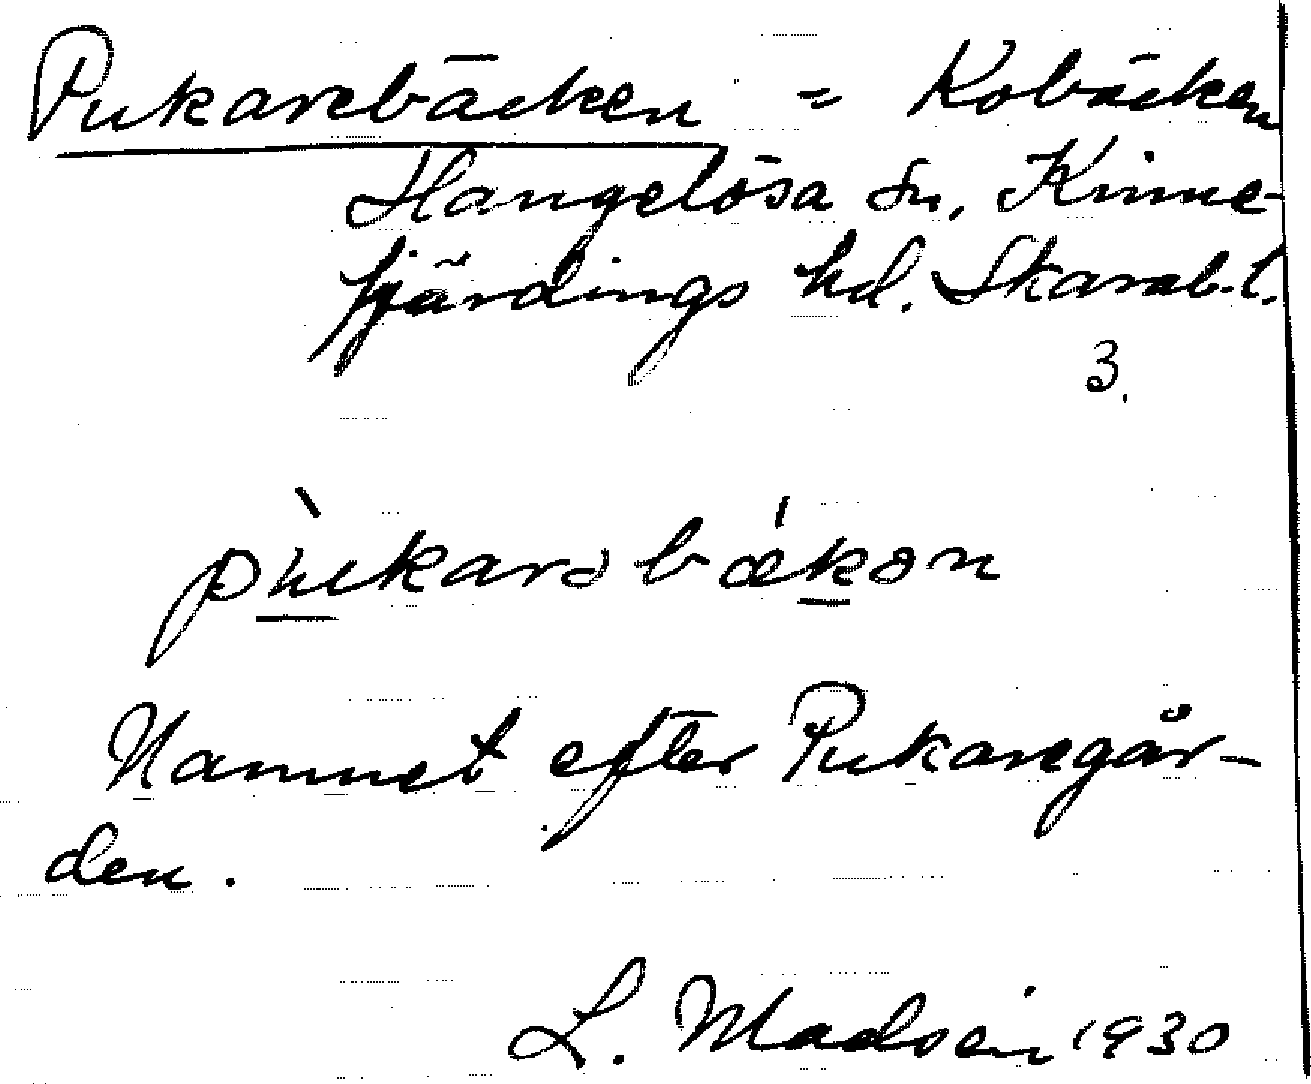 Pukarebäcken = Kobäcken
Hangelösa sn, Kinne-
fjärdings hd. Skarab.l.
3.
pùkarəbækən
Namnet efter Pukaregår-
den.
L. Madsén 1930